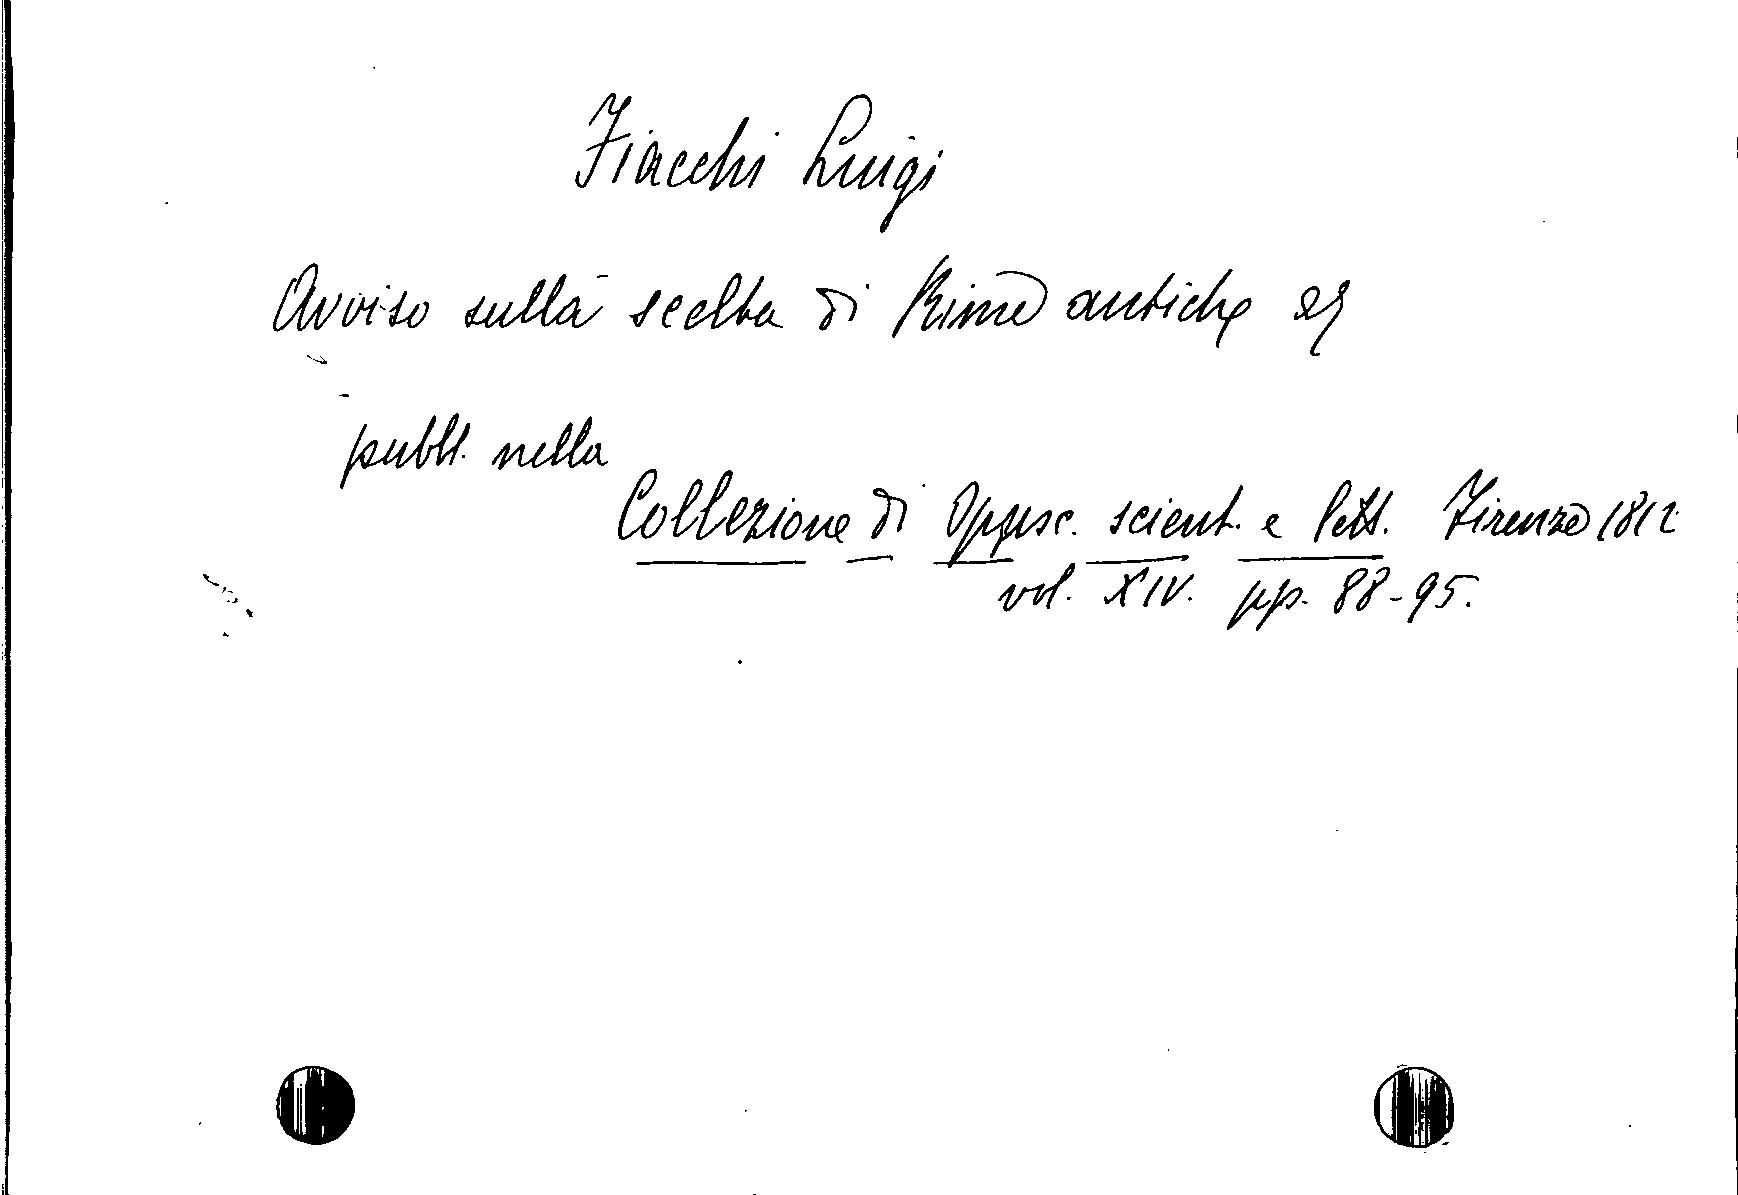 Fiacchi Luigi
Avviso sulla scelta di Rime antiche
pubbl. nella
Collezione di Opusc. scient. e lett. Firenze 1812
vol. XIV. pp. 88-95.